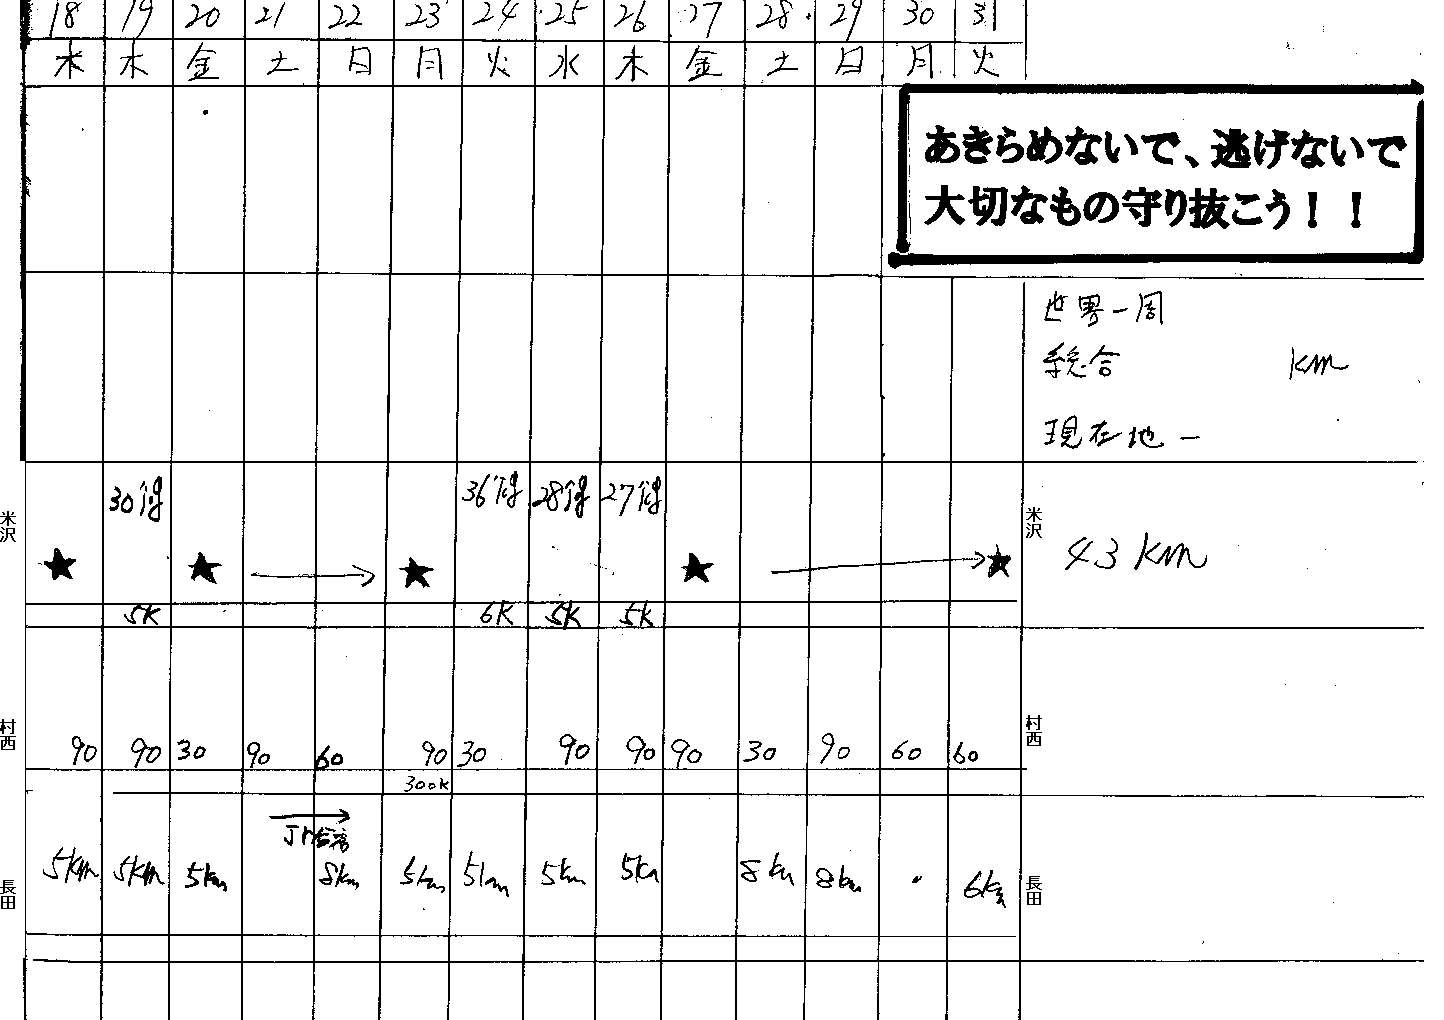 18 19 20 21 22 23 24 25 26 27 28 29 30 31
木 金 土 日 月 火 水 木 金 土 日 月 火
あきらめないで、逃げないで
大切なもの守り抜こう！！
世界一周
総合 km
現在地 ー
米沢
30 36 28 27
★ ★ → ★ ★ → ★
5K 6K 5K 5K
米沢
43 km
村西
90 90 30 90 60 90 30 90 90 90 30 90 60 60
300K
村西
長田
→
5km 5km 5km 8km 5km 5km 5km 5km 8km 8km 6km
長田